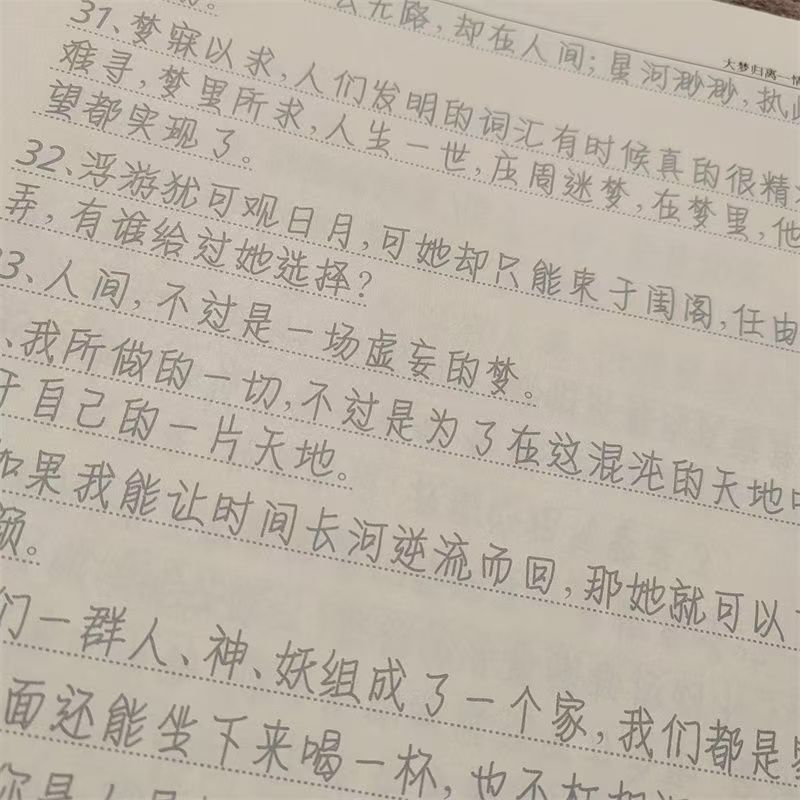 无路，却在人间；星河渺渺，执
大梦归离一情
31、梦寐以求，人们发明的词汇有时候真的很精
难寻，梦里所求，人生一世，庄周迷梦，在梦里，他
望都实现了。
32、浮游犹可观日月，可她却只能束于闺阁，任由
弄，有谁给过她选择？
3、人间，不过是一场虚妄的梦。
、我所做的一切，不过是为了在这混沌的天地
于自己的一片天地。
如果我能让时间长河逆流而回，那她就可以
颜。
们一群人、神、妖组成了一个家，我们都是
面还能坐下来喝一杯，也不枉相
你是人